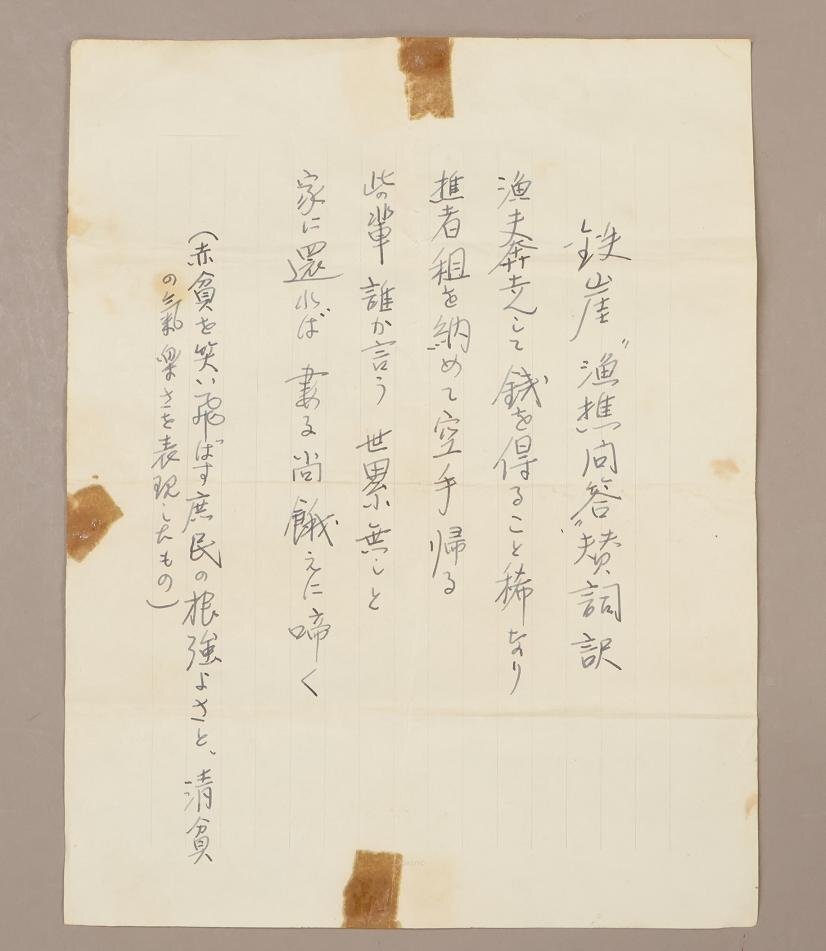 鉄崖〝漁樵问答〟賛詞訳
漁夫奔走して 錢を得ること稀なり
樵者租を納めて空手帰る
此の輩 誰か言う 世累無しと
家に還れば 妻子尚餓えに啼く
(赤貧を笑い飛ばす庶民の根強よさと、清貧
の氣楽さを表現したもの)